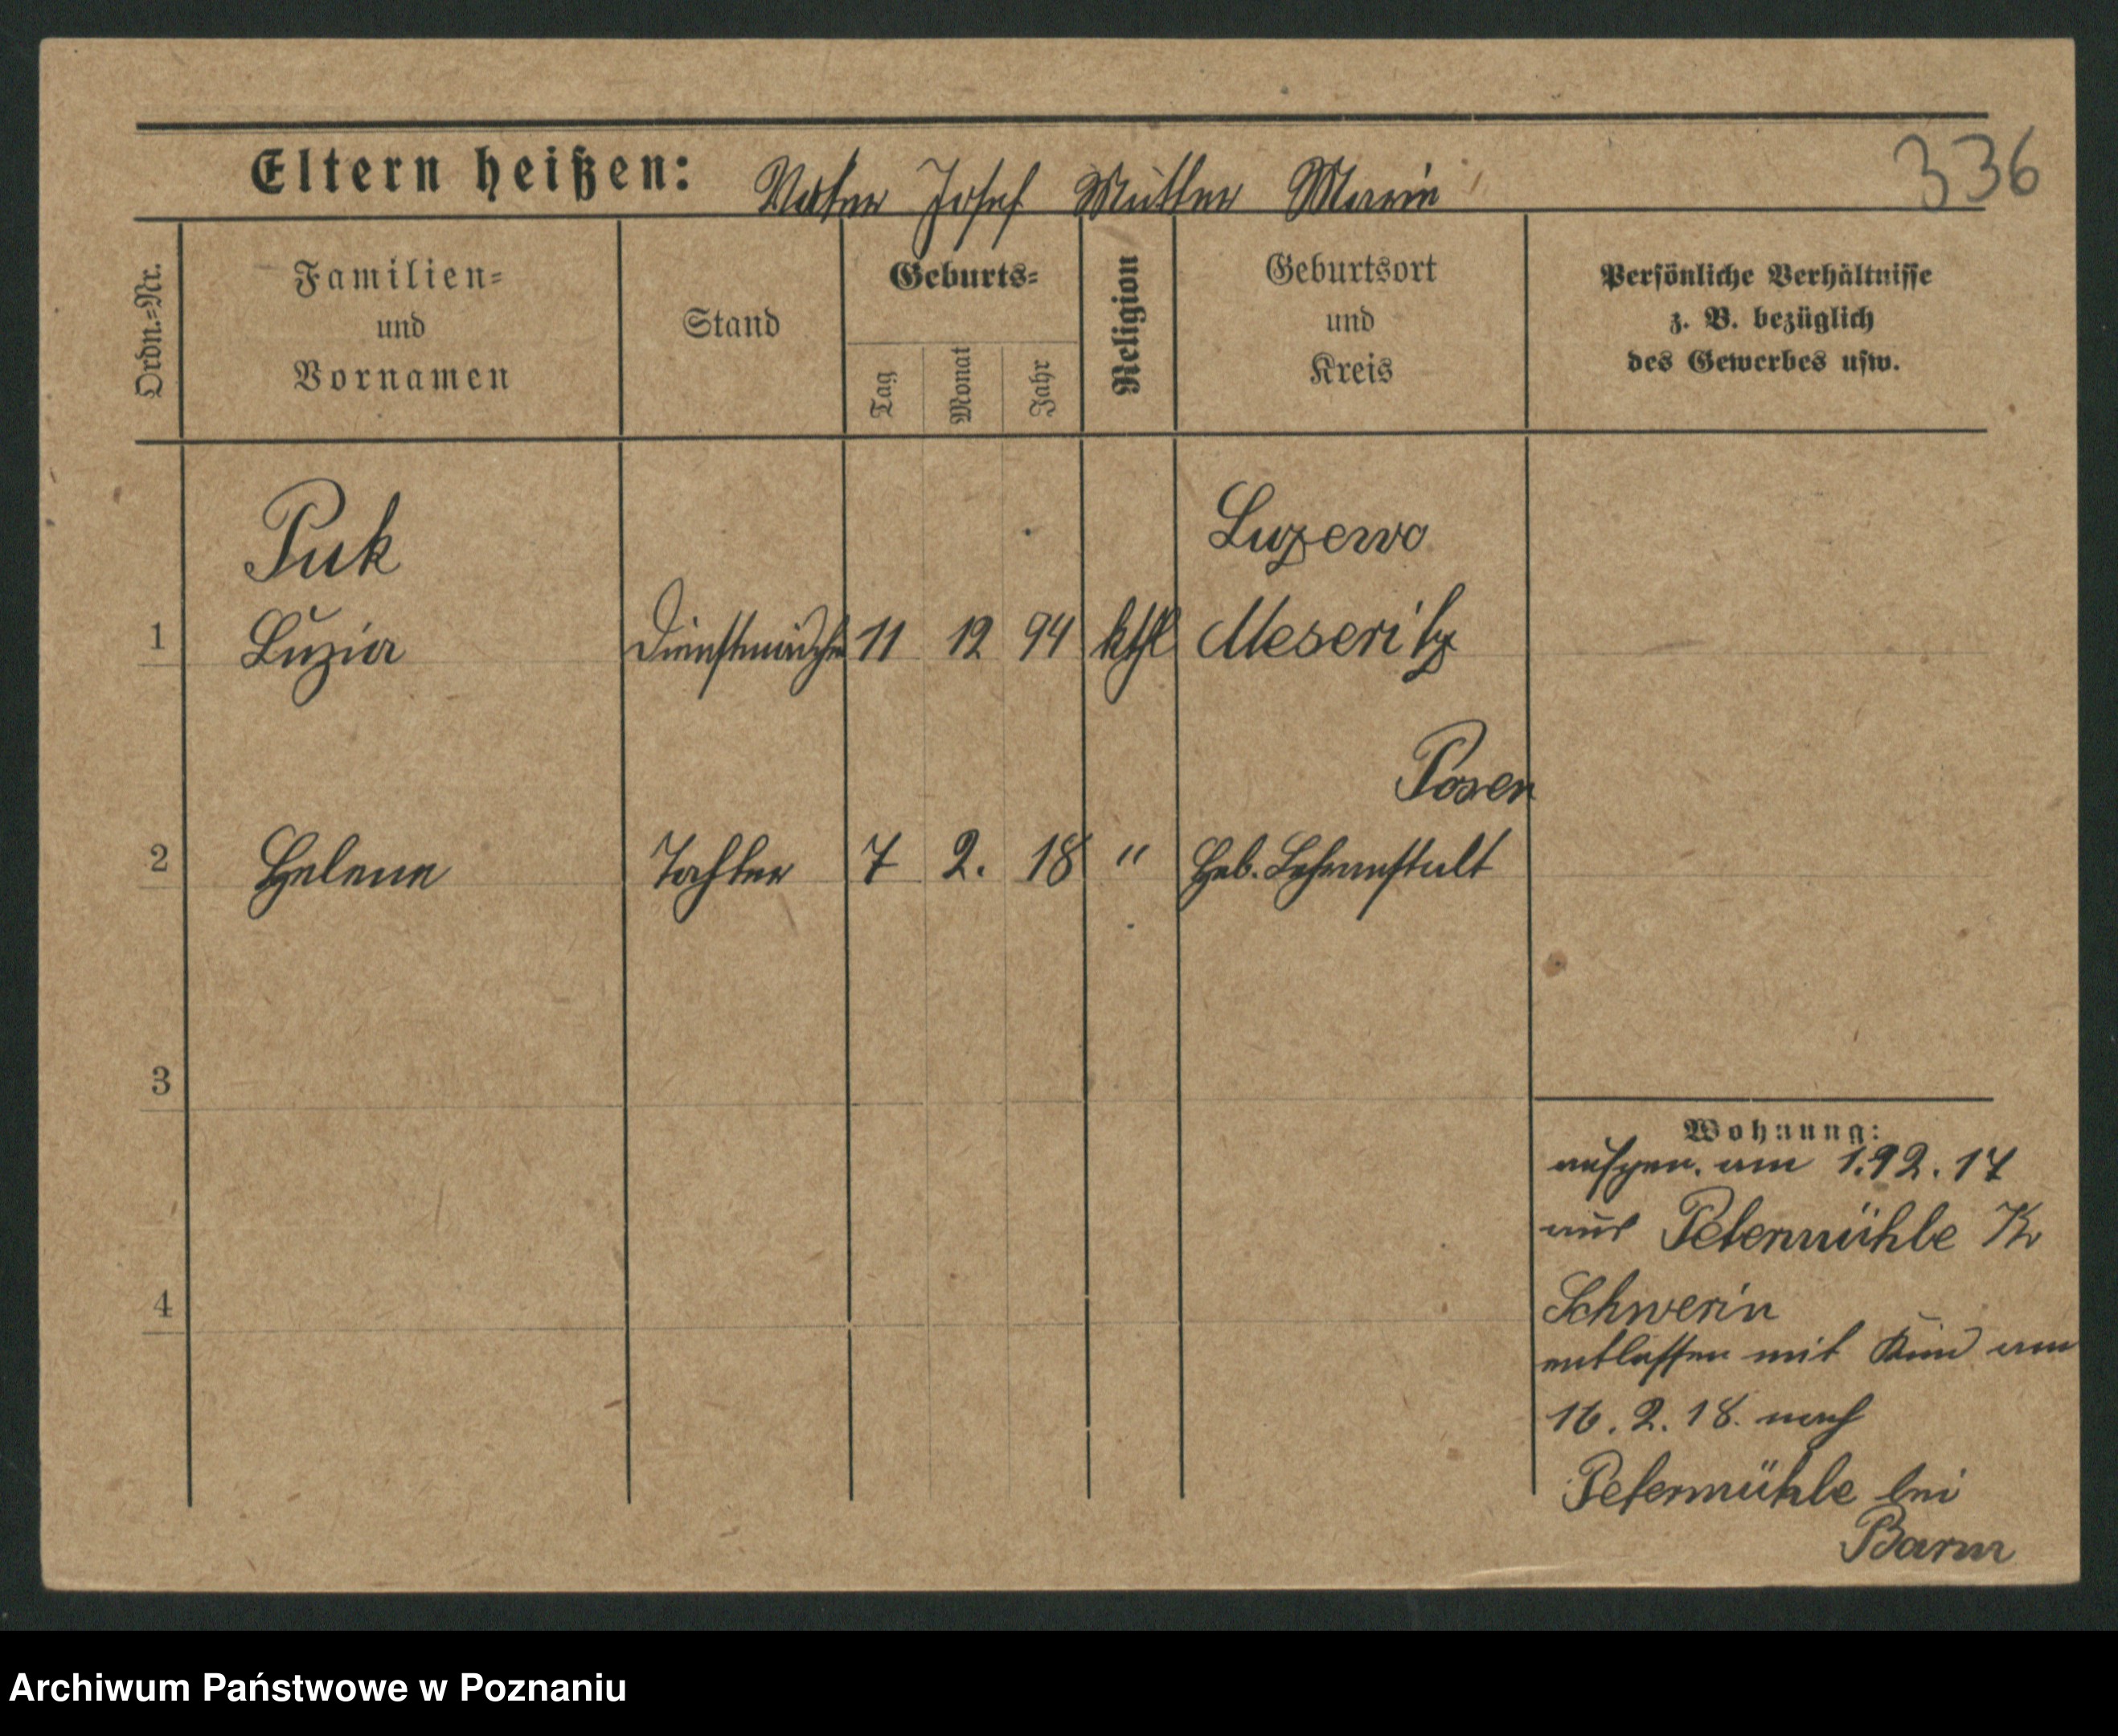 336
Eltern heißen: Vater Josef Mutter Marie
Ordn.-Nr.
Familien-
und
Vornamen
Stand
Geburts-
Tag
Monat
Jahr
Religion
Geburtsort
und
Kreis
Persönliche Verhältnisse
z. B. bezüglich
des Gewerbes usw.
Puk
Luzewo
1 Luzia Dienstmädch 11 12 94 kthl Meseritz
Posen
2 Helene Tochter 7 2. 18 " Heb. Lehranstalt
3
4
Wohnung:
aufgen. am 1.12.17
aus Petermühle Kr
Schwerin
entlassen mit Kind am
16.2.18. nach
Petermühle bei
Archiwum Państwowe w Poznaniu